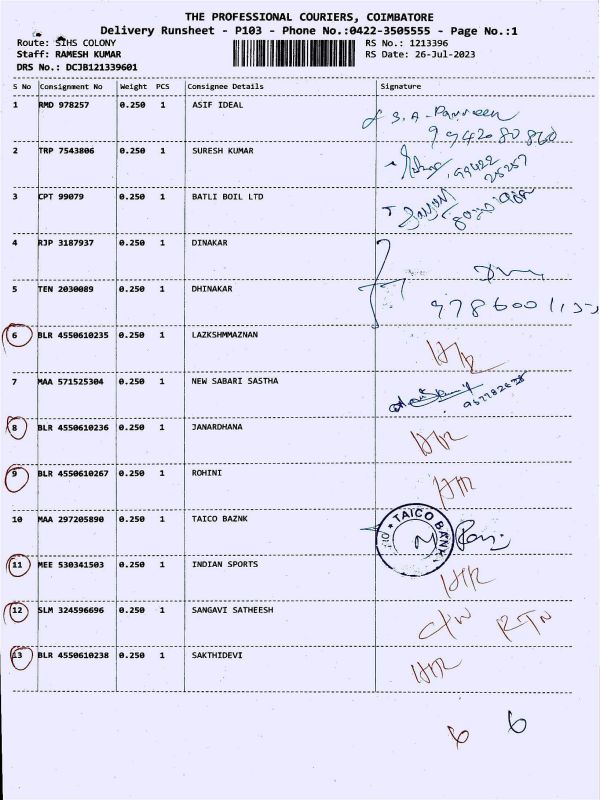 THE PROFESSIONAL COURIERS, COIMBATORE
Delivery Runsheet - P103 - Phone No.:0422-3505555 - Page No.:1
Route: SIHS COLONY RS No.: 1213396
Staff: RAMESH KUMAR RS Date: 26-Jul-2023
DRS No.: DCJB121339601
S No Consignment No Weight PCS Consignee Details Signature
1 RMD 978257 0.250 1 ASIF IDEAL S.A-Parveen
9942080860
2 TRP 7543806 0.250 1 SURESH KUMAR 99422
25257
3 CPT 99079 0.250 1 BATLI BOIL LTD
4 RJP 3187937 0.250 1 DINAKAR
5 TEN 2030089 0.250 1 DHINAKAR
6 BLR 4550610235 0.250 1 LAZKSHMMAZNAN
7 MAA 571525304 0.250 1 NEW SABARI SASTHA
8 BLR 4550610236 0.250 1 JANARDHANA
9 BLR 4550610267 0.250 1 ROHINI
10 MAA 297205890 0.250 1 TAICO BAZNK TAICO BANK
11 MEE 530341503 0.250 1 INDIAN SPORTS
12 SLM 324596696 0.250 1 SANGAVI SATHEESH RTN
13 BLR 4550610238 0.250 1 SAKTHIDEVI
6 6